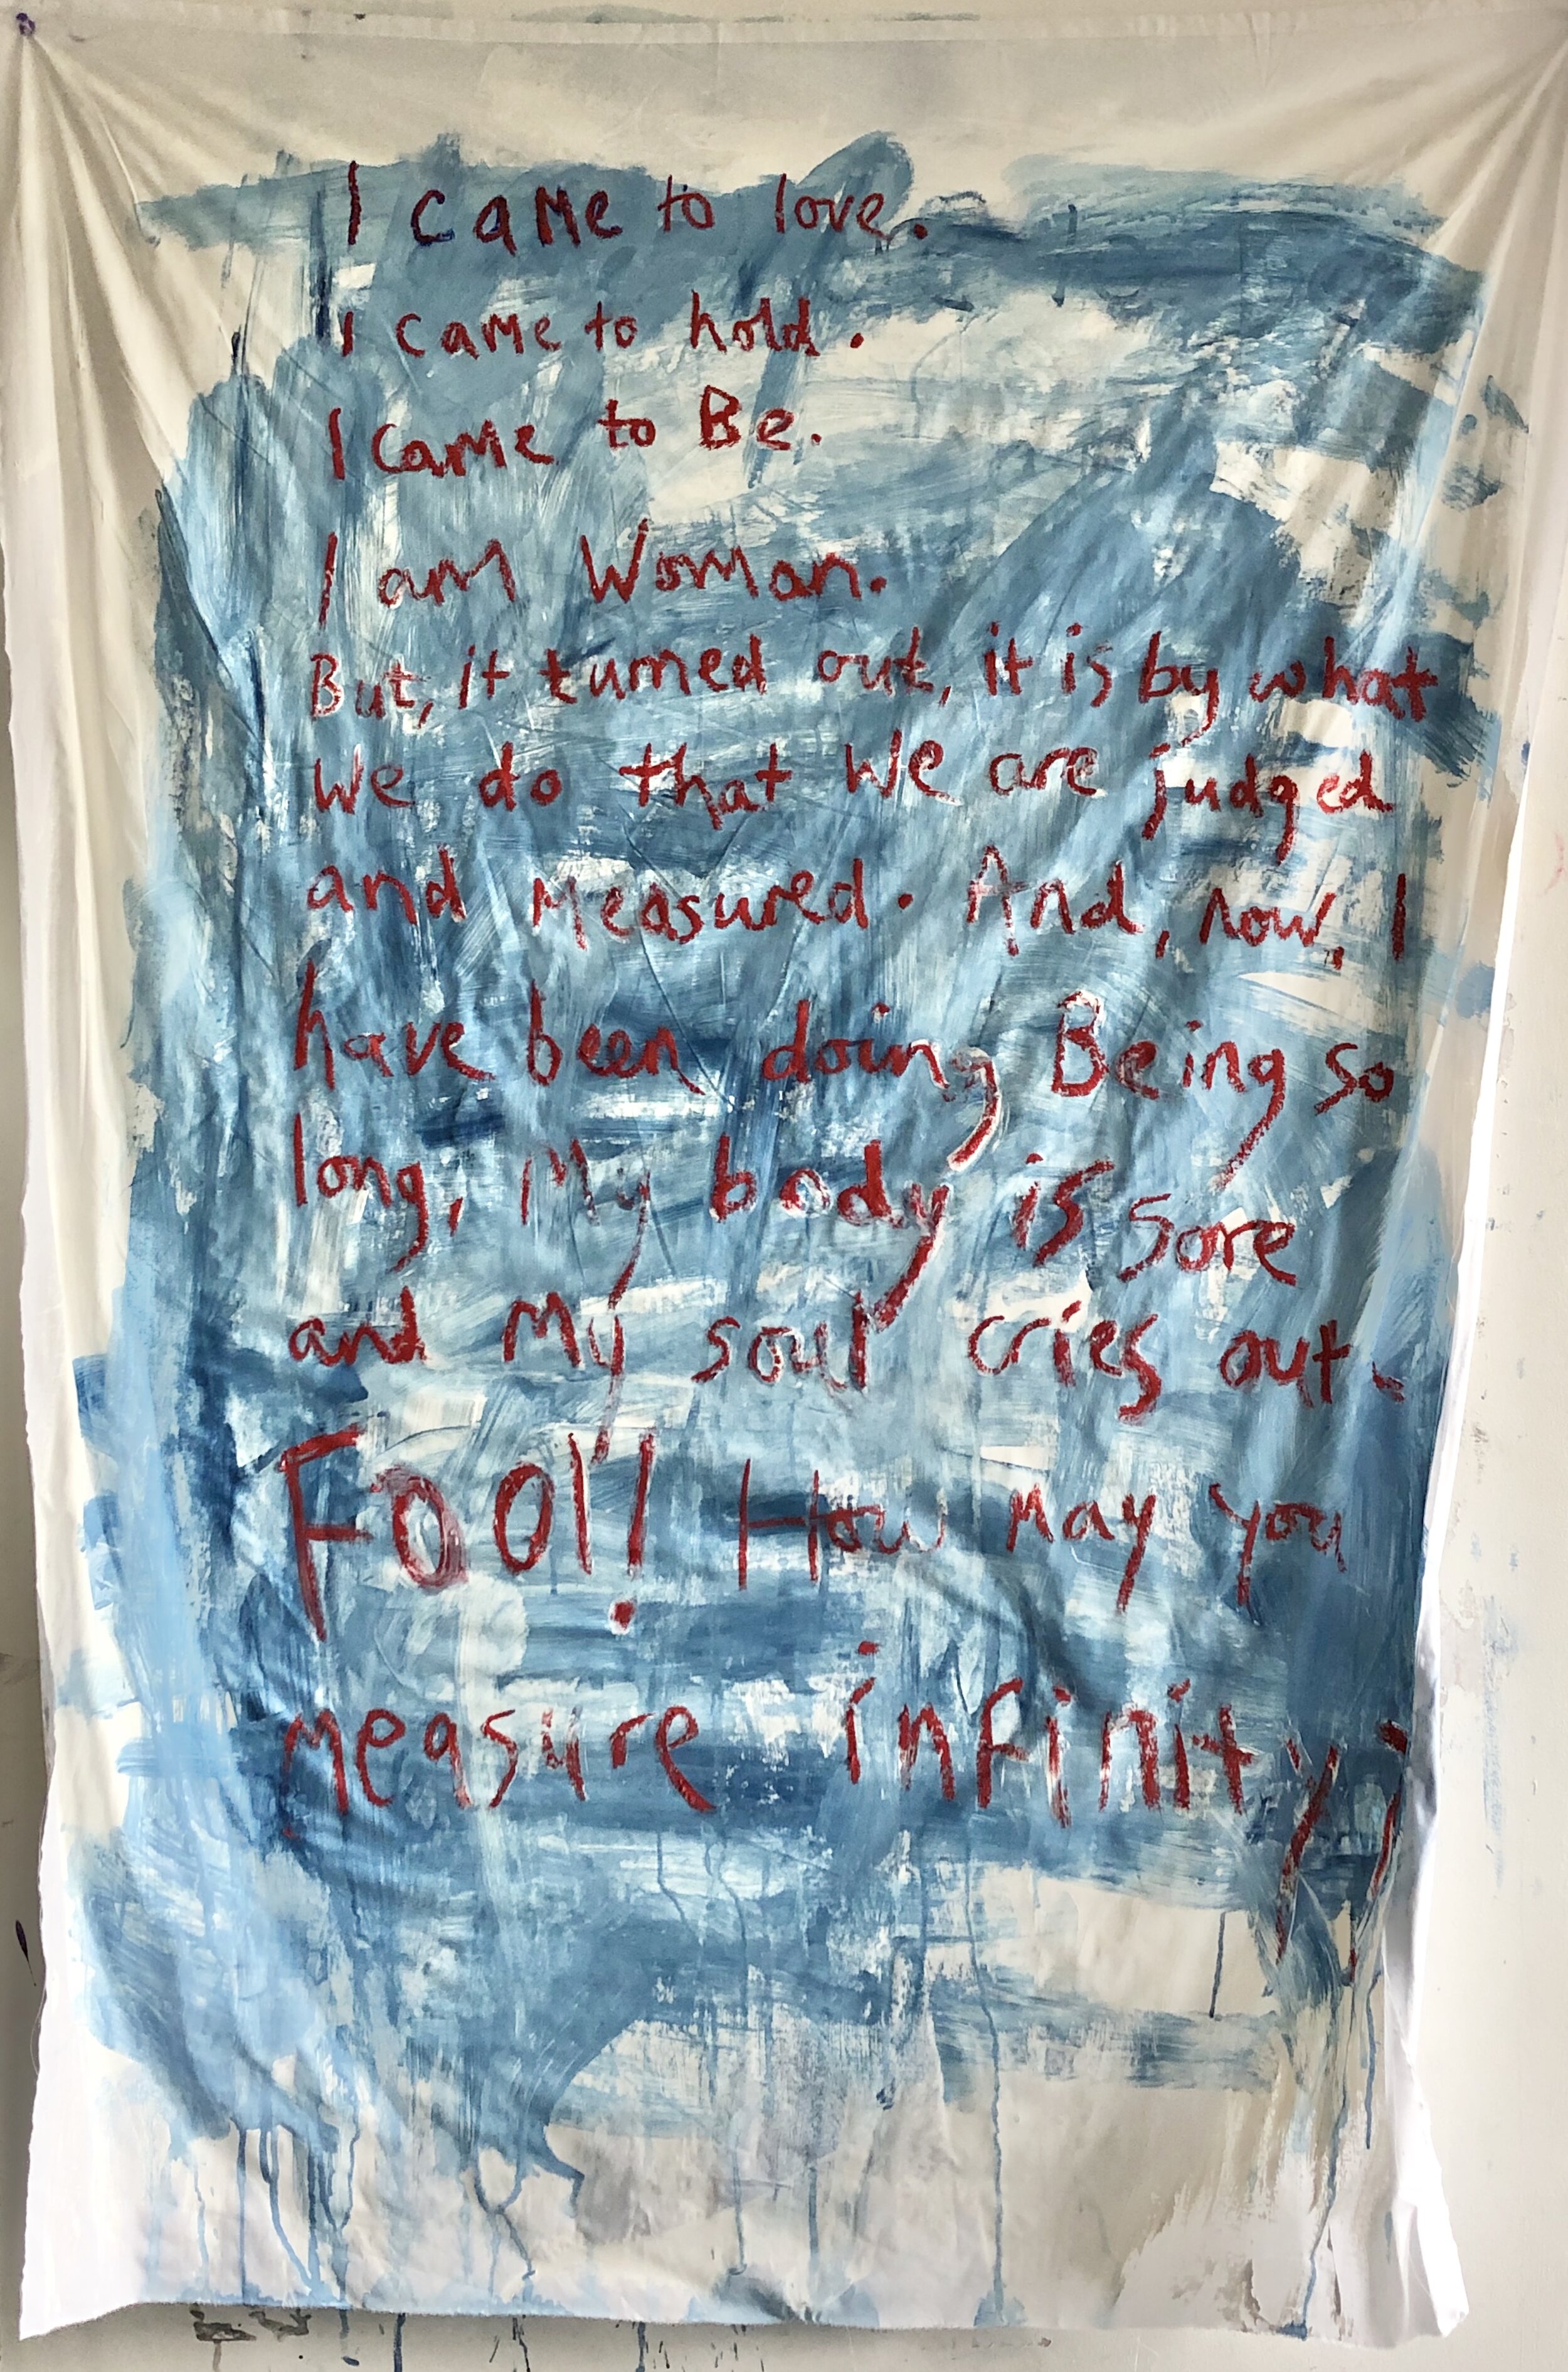 I came to love.
I came to hold.
I came to Be.
I am Woman.
But, it turned out, it is by what
We do that We are judged
and Measured. And, now, I
have been doing Being so
long, My body is sore
and My soul cries out.
Fool! How May you
measure infinity;